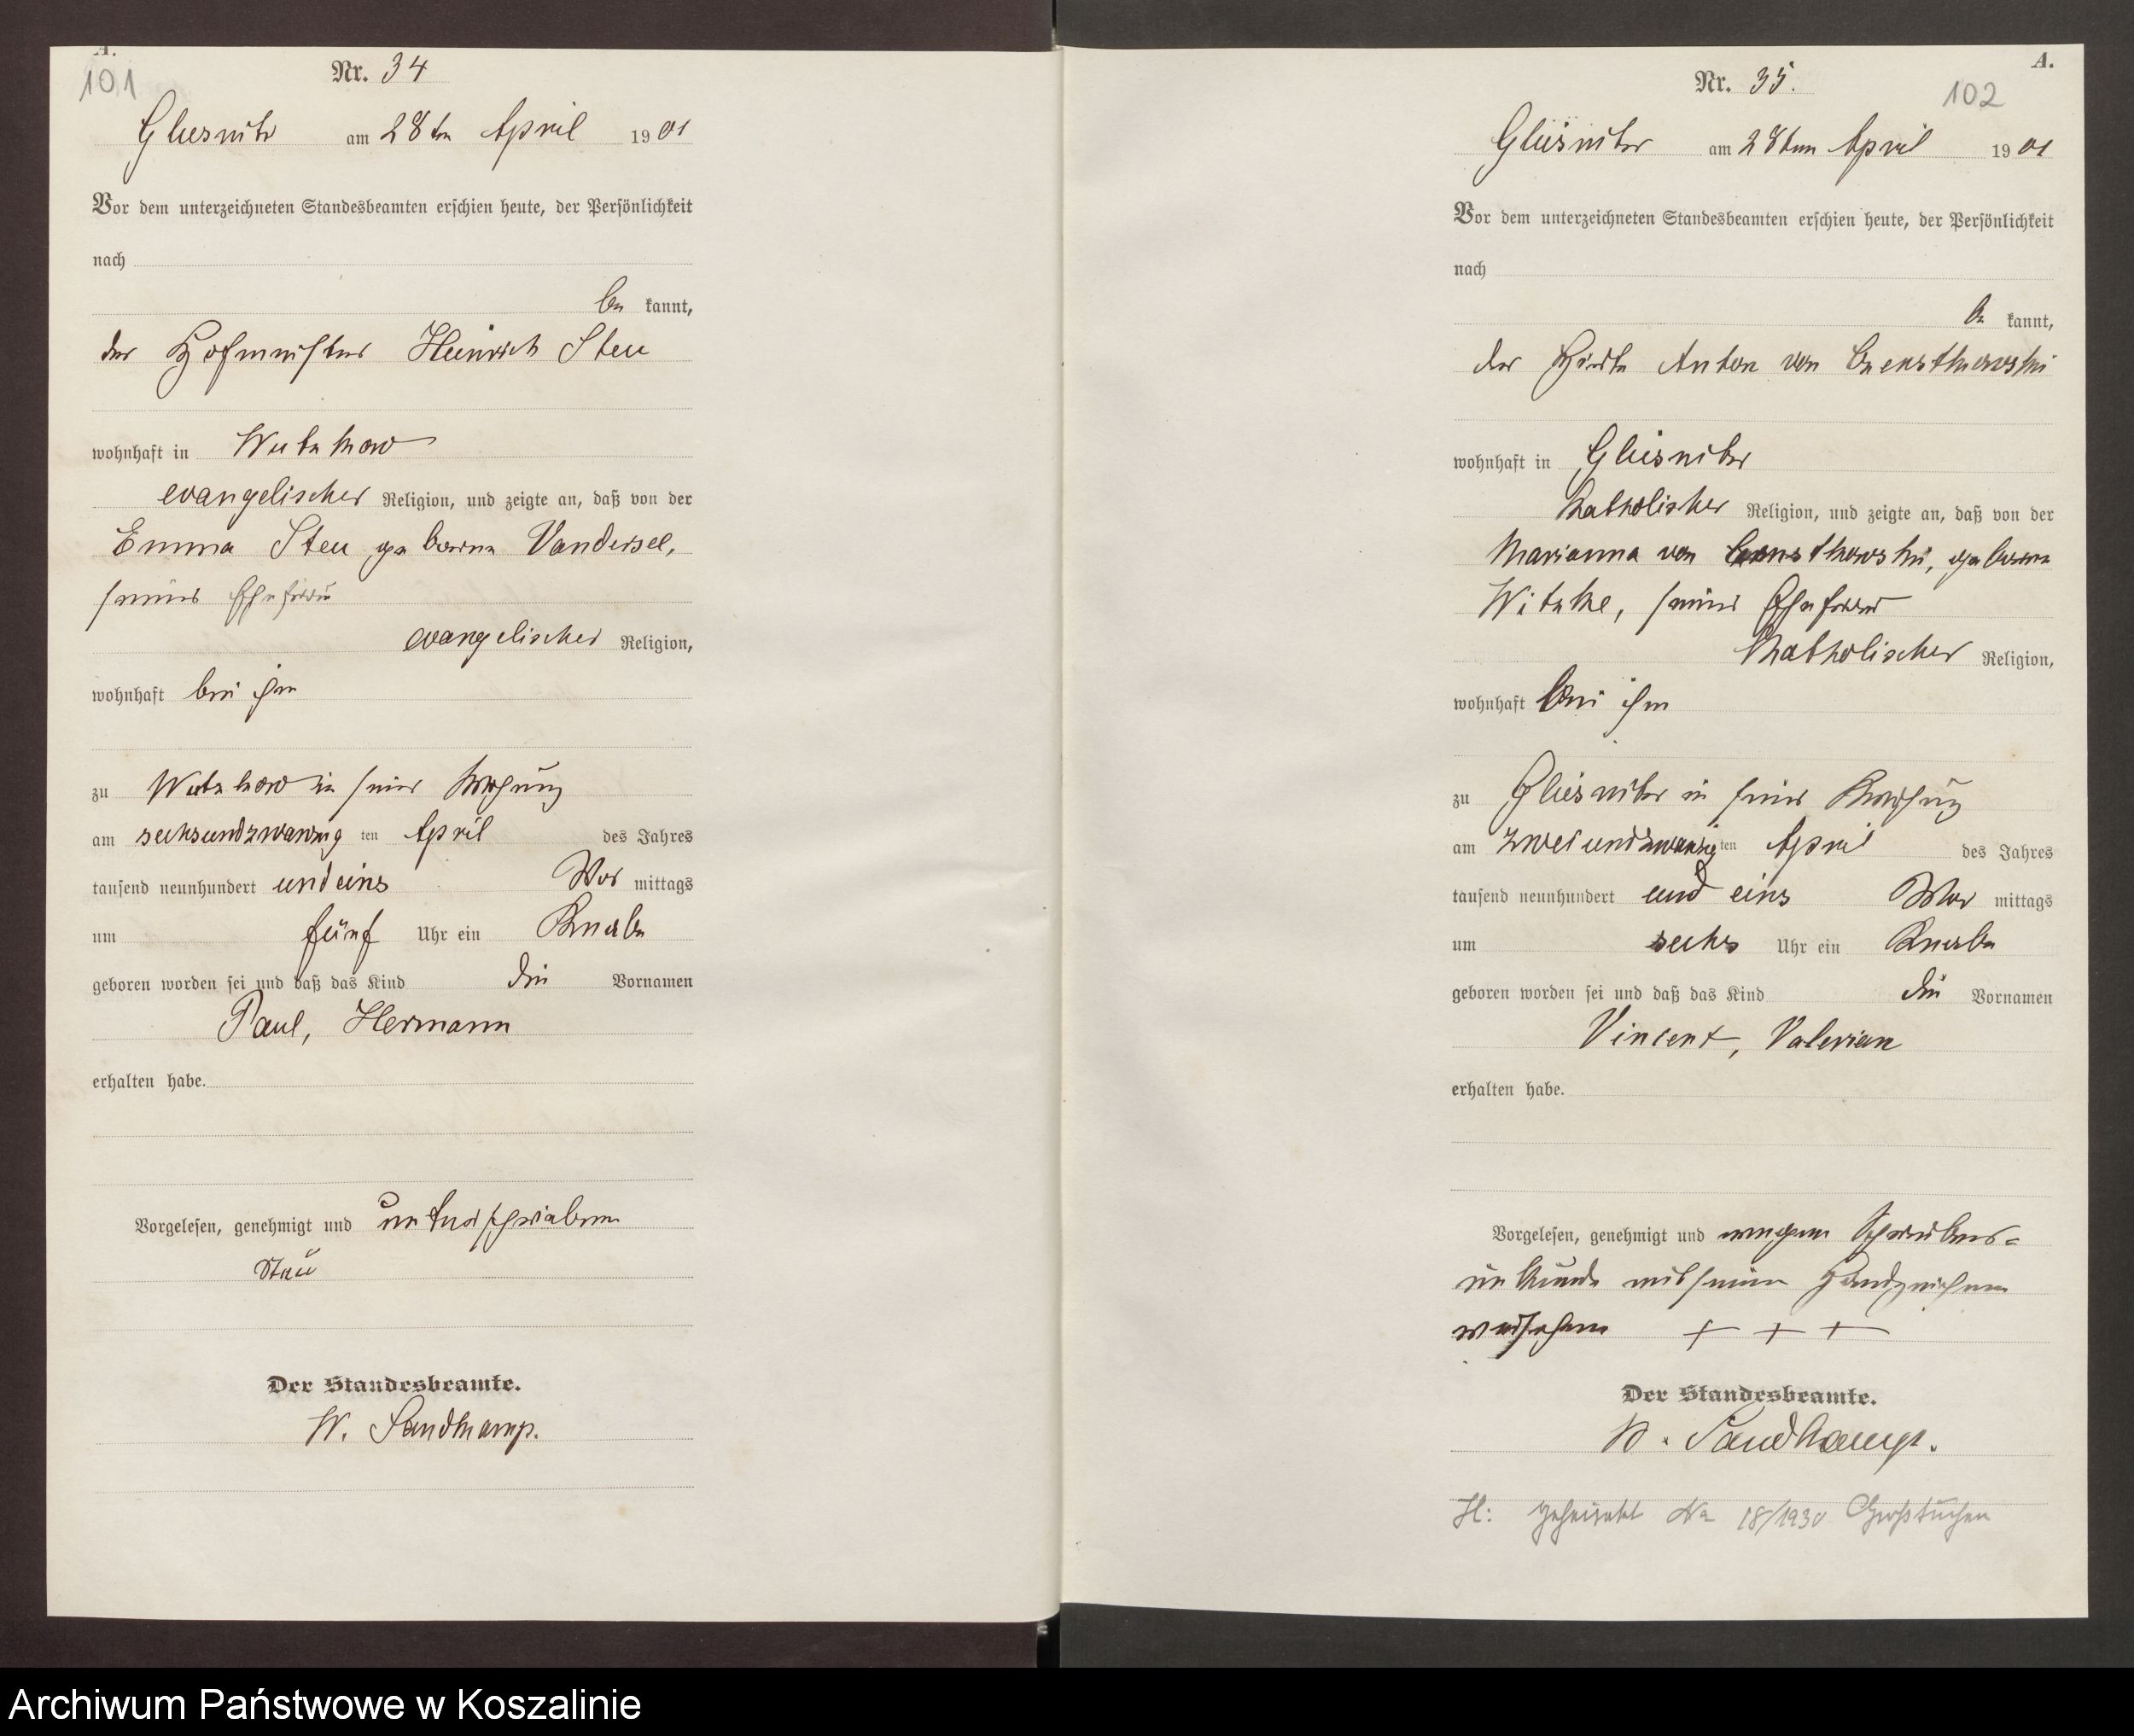 A.
101
Nr. 34
am 28ten April 1901
Vor dem unterzeichneten Standesbeamten erschien heute, der Persönlichkeit
nach
be kannt,
der Hofmeister Heinrich Steu
wohnhaft in Wutzkow
evangelischer Religion, und zeigte an, daß von der
Emma Steu geborne
seiner Ehefrau
evangelischer Religion,
wohnhaft bei ihm
zu Wutzkow in seiner Wohnung
am sechsundzwanzig ten April des Jahres
tausend neunhundert und eins Vor mittags
um fünf Uhr ein Knabe
geboren worden sei und daß das Kind die Vornamen
Paul, Hermann
erhalten habe.
Vorgelesen, genehmigt und unterschrieben
Der Standesbeamte.
W. Sandkamp.
A.
102
Nr. 35.
am 28ten April 1901
Vor dem unterzeichneten Standesbeamten erschien heute, der Persönlichkeit
nach
be kannt,
der Hirte Anton von
wohnhaft in
katholischer Religion, und zeigte an, daß von der
Marianna von geborne
Witzke, seiner Ehefrau
katholischer Religion,
wohnhaft bei ihm
zu in seiner Wohnung
am zweiundzwanzig ten April des Jahres
tausend neunhundert und eins Vor mittags
um sechs Uhr ein Knabe
geboren worden sei und daß das Kind die Vornamen
Vincent, Valerian
erhalten habe.
Vorgelesen, genehmigt und wegen Schreibens-
unkunde mit seinem Handzeichen
versehen + + +
Der Standesbeamte.
W. Sandkamp.
H: geheiratet No 18/1930 Großtuchen
Archiwum Państwowe w Koszalinie